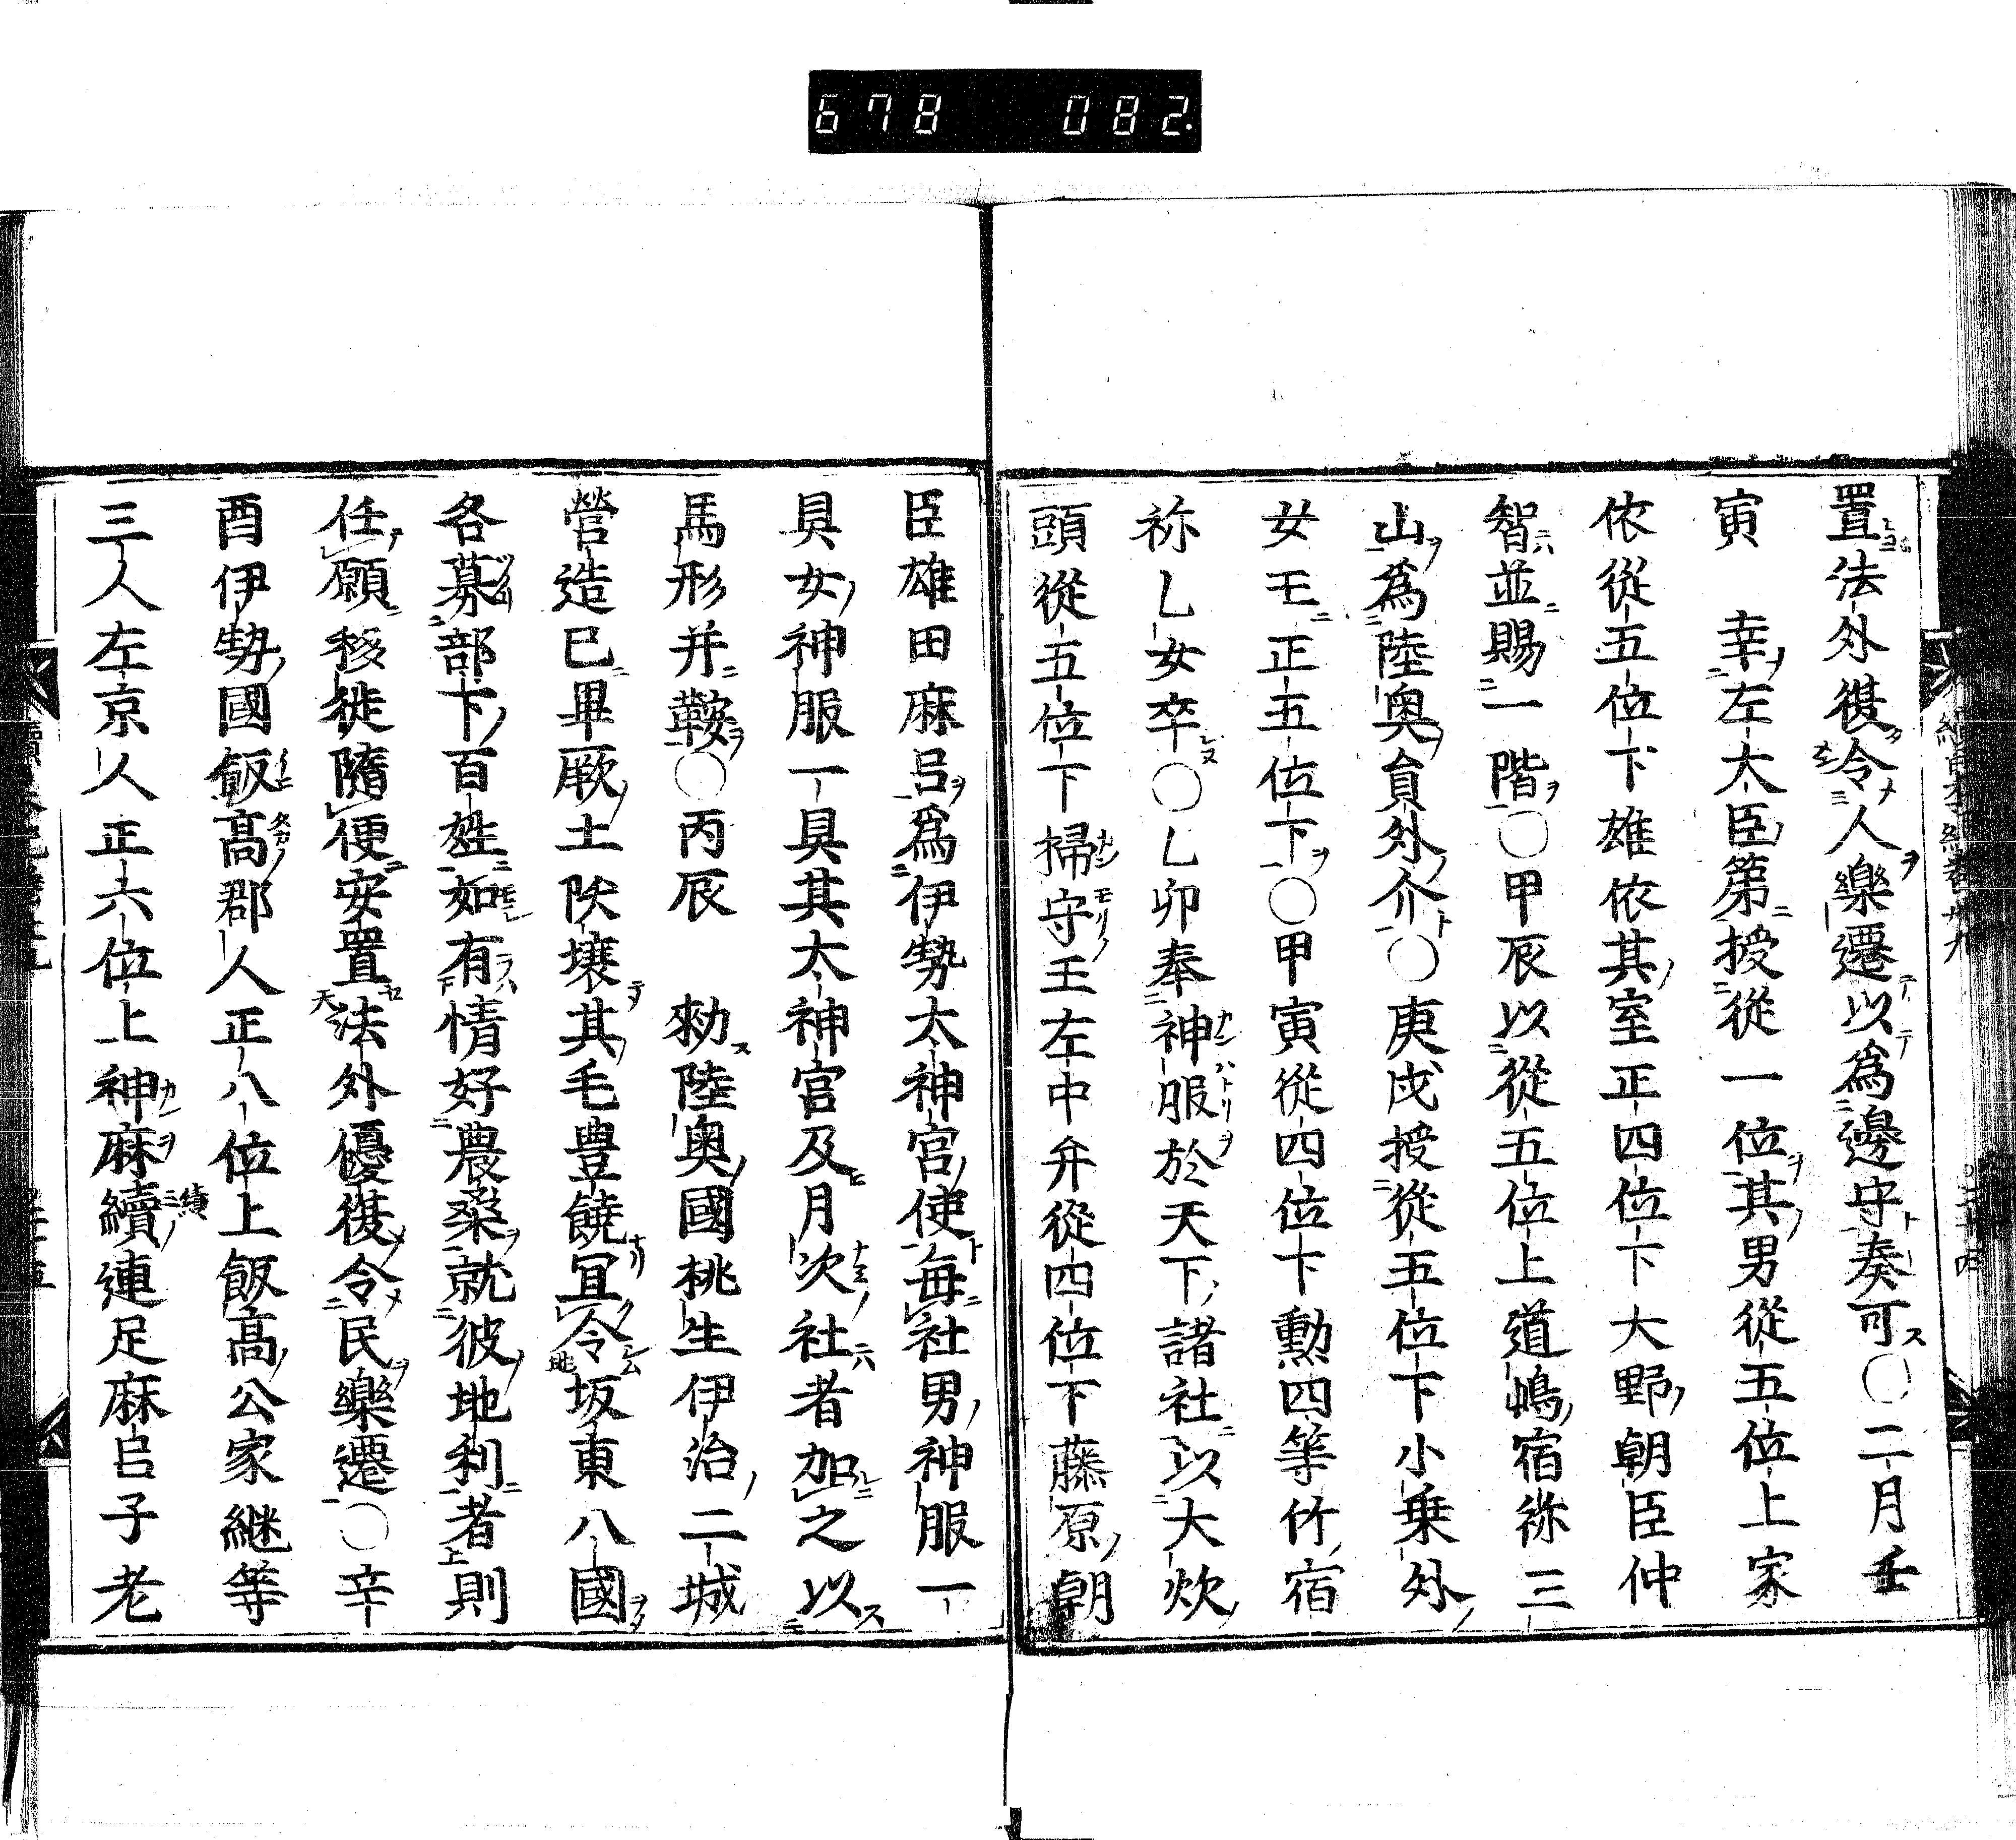 678 082
置法外復令人樂遷以爲邊守奏可〇二月壬
寅 幸左大臣第授從一位其男從五位上家
依從五位下雄依其室正四位下大野朝臣仲
智並賜一階〇甲辰以從五位上道嶋宿祢三
山爲陸奥員外介〇庚戌授從五位下小乗外
女王正五位下〇甲寅從四位下勲四等竹宿
祢乚女卒〇乚卯奉神服於天下諸社以大炊
頭從五位下掃守王左中弁從四位下藤原朝
臣雄田麻呂爲伊勢太神宮使毎社男神服一
具女神服一具其太神宮及月次社者加之以
馬形并鞍〇丙辰 勑陸奥國桃生伊治二城
營造已畢厥土沃壌其毛豊饒冝令坂東八國
各募部下百姓如有情好農桑就彼地利者則
任願移徙隨便安置法外優復令民樂遷〇辛
酉伊勢國飯髙郡人正八位上飯髙公家継等
三人左京人正六位上神麻續連足麻呂子老